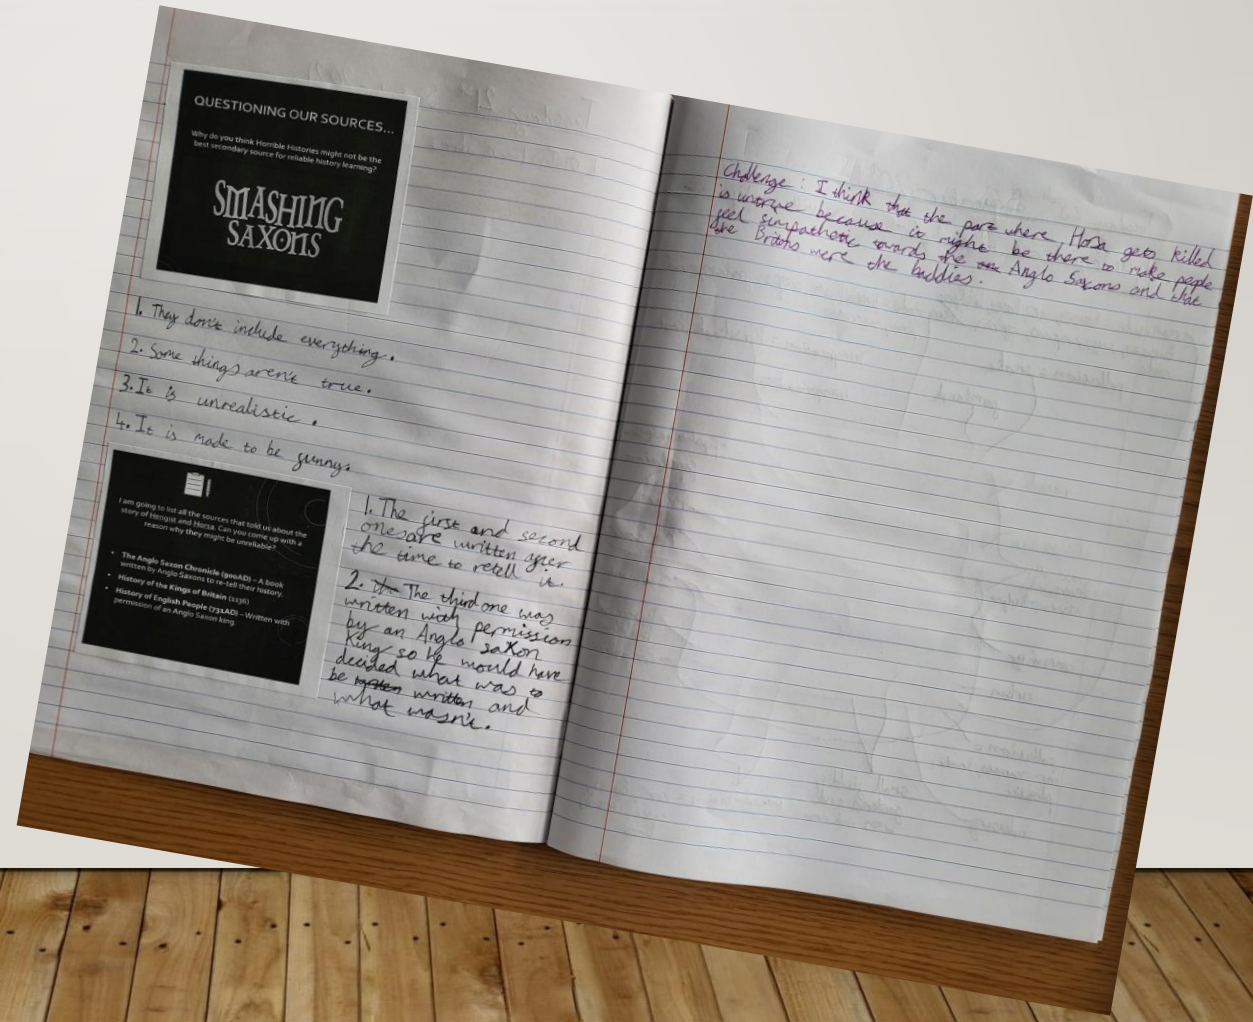 QUESTIONING OUR SOURCES...
Why do you think Horrible Histories might not be the
best secondary source for reliable history learning?
SMASHING
SAXONS
1. They don't include everything.
2. Some things aren't true.
3. It is unrealistic.
4. It is made to be funny.
I am going to list all the sources that told us about the
story of Hengist and Horsa. Can you come up with a
reason why they might be unreliable?
• The Anglo Saxon Chronicle (900AD) – A book
written by Anglo Saxons to re-tell their history.
• History of the Kings of Britain (1136)
• History of English People (731AD) – Written with
permission of an Anglo Saxon king.
1. The first and second
ones are written after
the time to retell it.
2. The third one was
written with permission
by an Anglo saxon
King so he would have
decided what was to
be written and
what wasn't.
Challenge: I think that the part where Horsa gets killed
is untrue because it might be there to make people
feel simpathetic towards the Anglo Saxons and that
the Britons were the baddies.